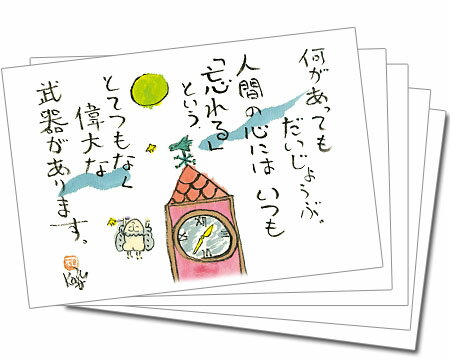 何があっても
だいじょうぶ。
人間の心には いつも
「忘れる」
という、
とてつもなく
偉大な
武器があります。